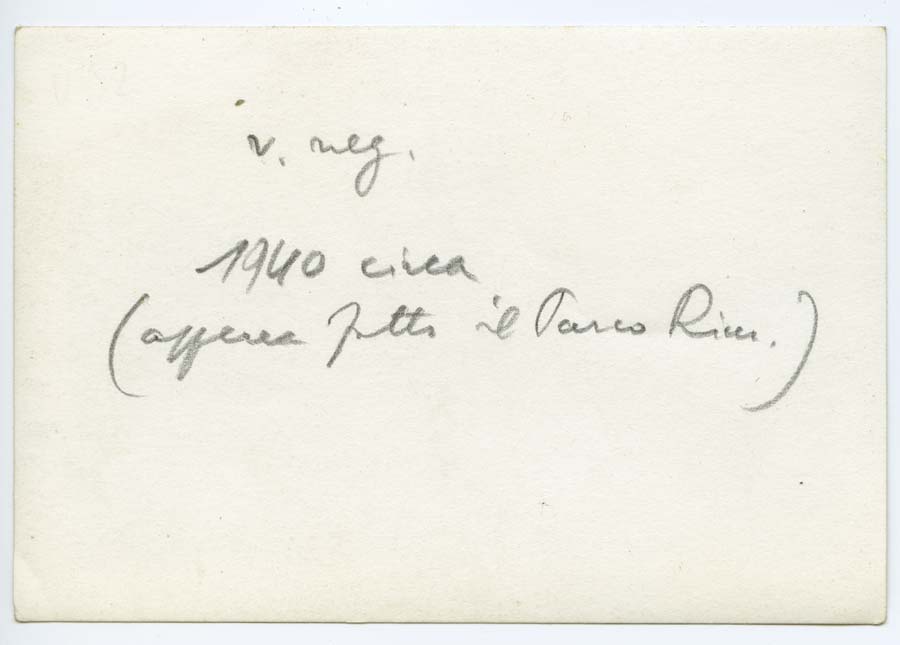 v. neg.
1940 circa
(appena fatto il Parco Rim.)